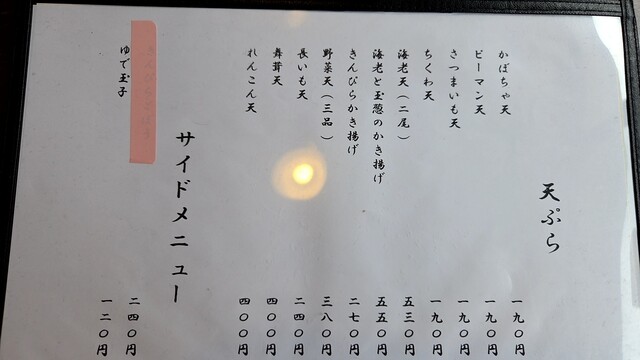 天ぷら
かぼちゃ天 一九〇円
ピーマン天 一九〇円
さつまいも天 一九〇円
ちくわ天 一九〇円
海老天(二尾) 五三〇円
海老と玉葱のかき揚げ 五五〇円
きんぴらかき揚げ 二七〇円
野菜天(三品) 三八〇円
長いも天 二四〇円
舞茸天 四〇〇円
れんこん天 四〇〇円
サイドメニュー
二四〇円
ゆで玉子 一二〇円